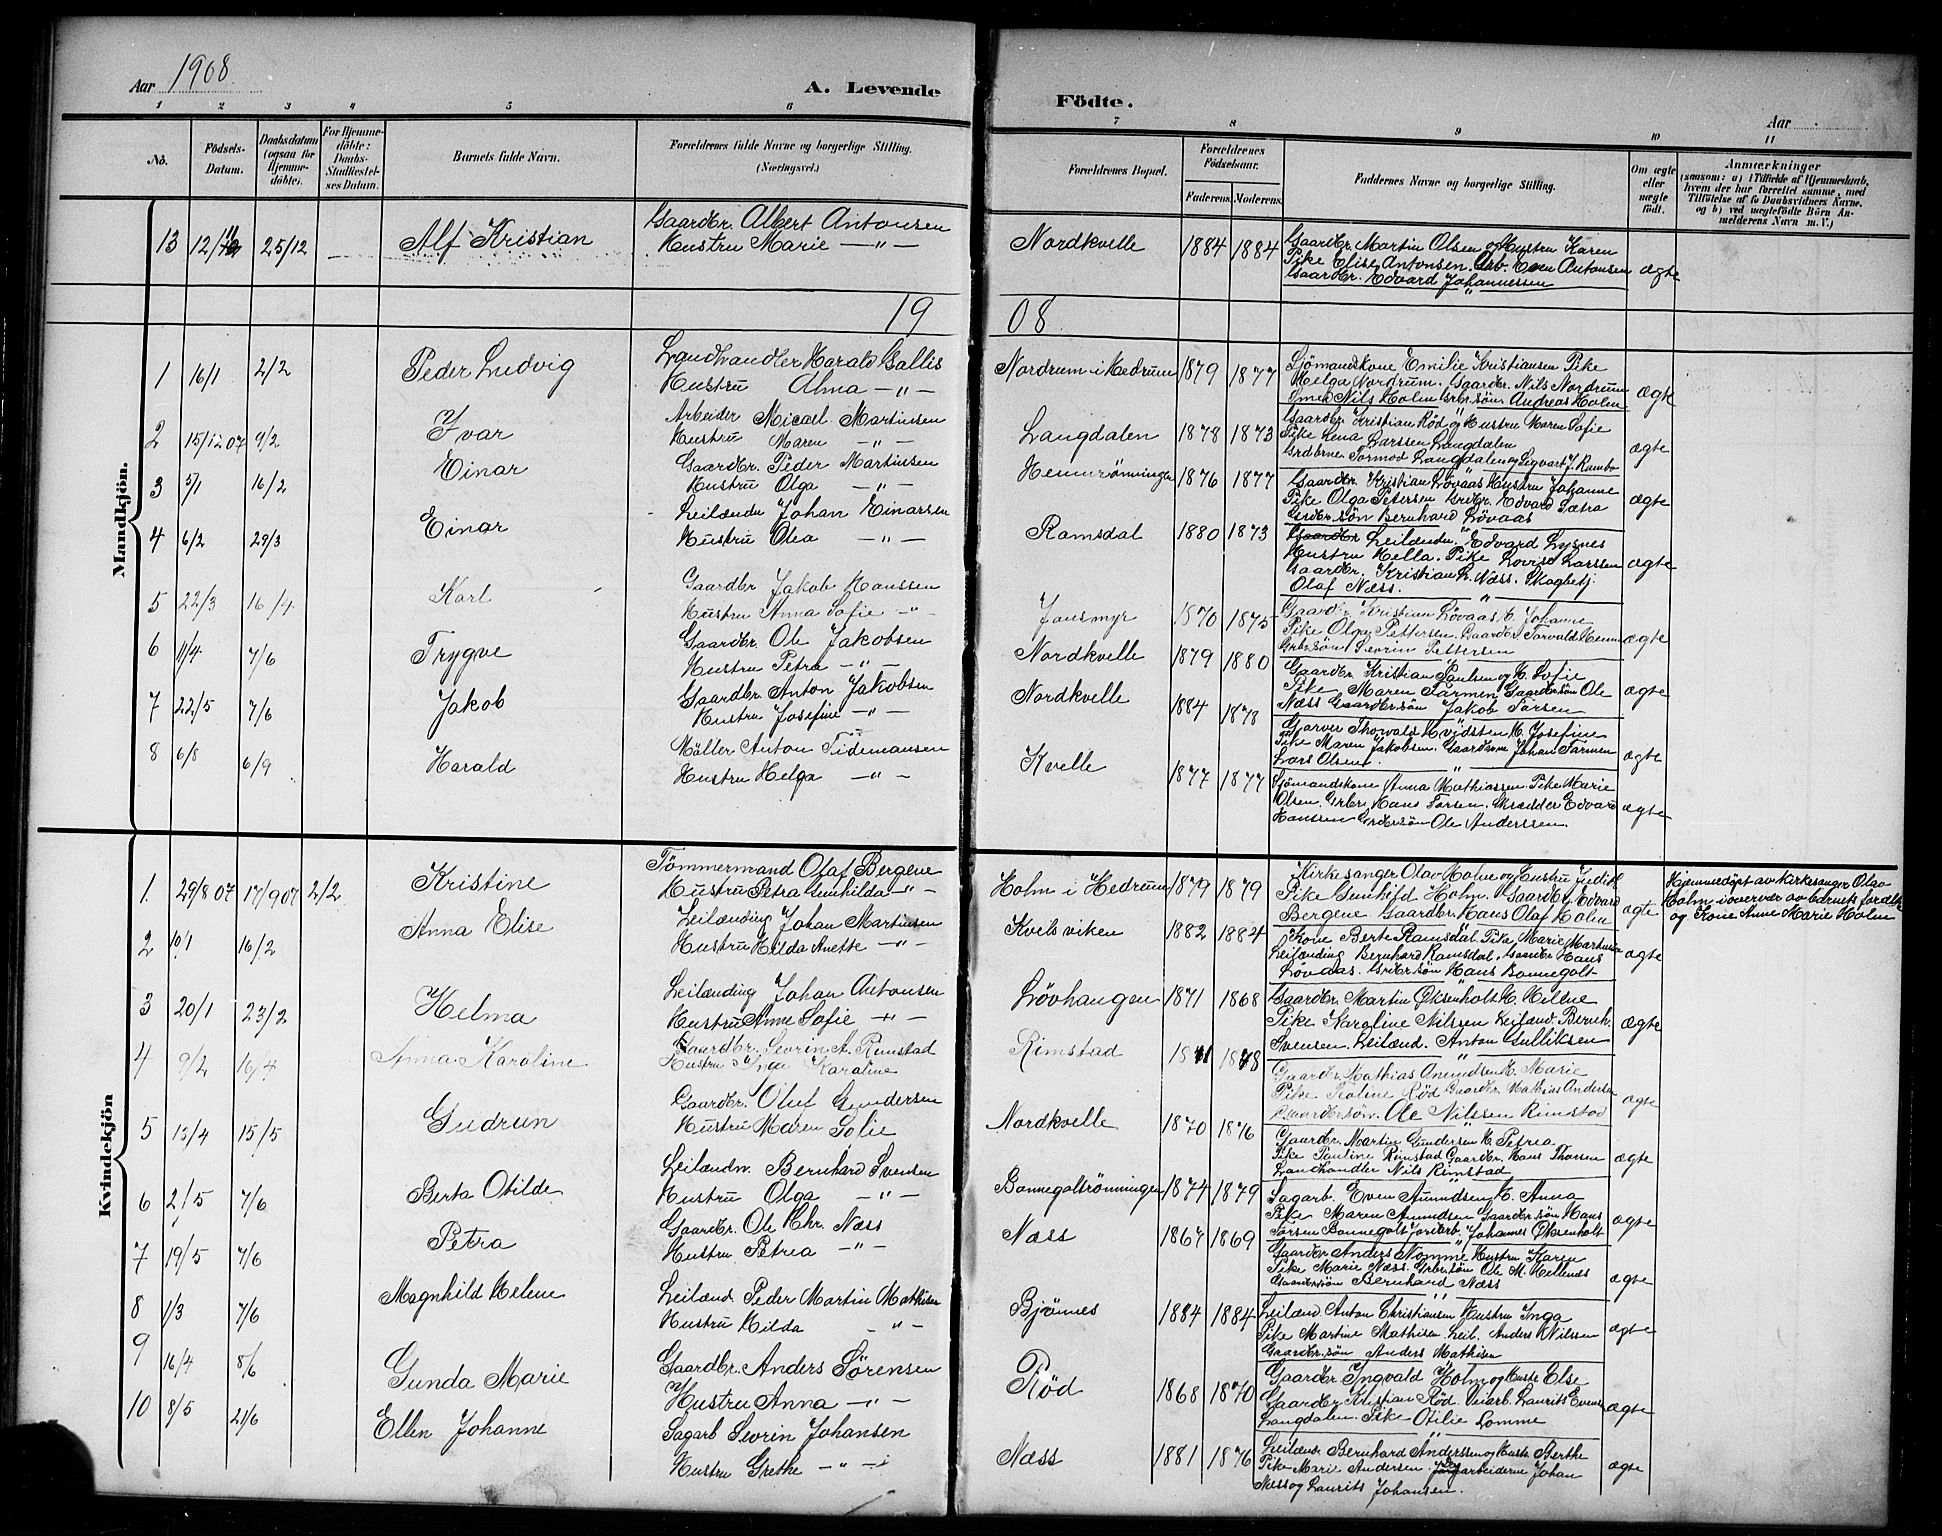 Aar 1908
A. Levende Födte.
Aar
1 2 3 4 5 6 7 8 9 10 11
No.
Födsels-Datum.
Daabsdatum (ogsaa for Hjemme-döbte).
For Hjemme-döbte: Daabs-Stadfæstel-ses Datum.
Barnets fulde Navn.
Forældrenes fulde Navne og borgerlige Stilling. (Næringsvei.)
Forældrenes Bopæl.
Forældrenes Födselsaar.
Faderens. Moderens.
Faddernes Navne og borgerlige Stilling.
Om ægte eller uægte født.
Anmærkninger
(saasom: a) i Tilfælde af Hjemmedaab,
hvem der har forrettet samme, med
Tilföielse af to Daabsvidners Navne.
og b) ved uægtefödte Börn An-
melderens Navn m. V.)
Mandkjön.
13 25/12 Alf Kristian
Gaardbr. Albert Antonsen
Hustru Marie — " —
Nordkvelle 1884 1884
Gaardbr. Martin Olsen og Hustru Karen
Pike Elise Antonsen. Arb. Even Antonsen
Gaardbr. Edvard Johannessen
ægte
1908
1 16/1 2/2 Peder Ludvig
Landhandler Harald Gallis
Hustru Alma — " —
Nordrum i Hedrum 1879 1877
Sjömandskone Emilie Kristiansen Pike
Helga Nordrum. Gaardbr. Nils Nordrum
Nils Holm Grbr.sön Andreas Holm
ægte
2 15/12 07 9/2 Ivar
Arbeider Micael Martinsen
Hustru Maren — " —
Langdalen 1878 1873
Gaardbr. Kristian Röd og Hustru Maren Sofie
Pike Lena Larssen Langdalen
Tormod Langdalen og Sigvart J. Rambo
ægte
3 5/1 16/2 Einar
Gaardbr. Peder Martinsen
Hustru Olga — " —
Hemmrönningen 1876 1877
Gaardbr. Kristian Lövaas Hustru Johanne
Pike Olga Petersen Grdbr. Edvard Sætra
Grdbr.sön Bernhard Lövaas
ægte
4 6/2 29/3 Einar
Leilændn Johan Einarsen
Hustru Olea — " —
Ramsdal 1880 1873
Gaardbr Leilændn. Edvard Lysnes
Hustru Hella. Pike Lovise Larssen
Gaardbr. Kristian L. Næss. Skogbetj.
Olaf Næss.
ægte
5 22/3 16/4 Karl
Gaardbr Jakob Hanssen
Hustru Anna Sofie — " —
Jansmyr 1870 1875
Gaardbr Kristian Lövaas H. Johanne
Pike Olga Pettersen, Gaardbr. Torvald Hemm
Grbr.sön Sevrin Pettersen
ægte
6 11/4 7/6 Trygve
Gaardbr. Ole Jakobsen
Hustru Petra — " —
Nordkvelle 1879 1880
Gaardbr Kristian Paulsen og H. Sofie
Pike Maren Farmen, Gaardbr.sön Ole
Næss Gaardbr.sön Jakob Torsen
ægte
7 22/5 7/6 Jakob
Gaardbr Anton Jakobsen
Hustru Josefine — " —
Nordkvelle 1884 1878
Garver Thorvald Kvidsten H. Josefine
Pike Maren Jakobsen. Gaardbrne Johan Farmen
Lars Olsen.
ægte
8 6/8 6/9 Harald
Möller Anton Tidemansen
Hustru Helga — " —
Kvelle 1877 1877
Sjömandskone Anna Mathiassen. Pike Marie
Olsen. Grbr. Hans Torsen, Skrædder Edvard
Hanssen Grdbr.sön Ole Anderssen.
ægte
Kvindekjön
1. 29/8 07 17/9 07 2/2 Kristine
Tömmermand Olaf Bergene
Hustru Petra Gunhilda — " —
Holm i Hedrum 1879 1879
Kirkesanger Olav Holm og Hustru Judith
Pike Gunhild Holm. Gaardbr. Edvard
Bergene Gaardbr. Hans Olaf Holm
ægte
Hjemmedöpt av kirkesanger Olav
Holm i overvær av barnets forældre
og Kone Anne Marie Holm
2 10/1 16/2 Anna Elise
Leilænding Johan Martinsen
Hustru Hilda Anette — " —
Kvilsviken 1882 1884
Kone Berte Ramsdal. Pike Marie Martinsen
Leilænding Bernhard Ramsdal. Gaardbr Hans
Lövaas. Grdbr.sön Hans Bonnegolt
ægte
3 20/1 23/2 Helma
Leilænding Johan Antonsen
Hustru Anne Sofie — " —
Lövhaugen 1871 1868
Gaardbr. Martin Öksenholt H. Hilene
Pike Karoline Nilssen Leilænd. Bernh.
Svensen. Leilænd. Anton Gulliksen
ægte
4 9/2 16/4 Anna Karoline
Gaardbr. Sevrin A. Rimstad
Hustru Inga Karoline
Rimstad
Gaardbr. Mathias Amundsen H. Marie
Pike Röd Gaardbr. Mathias Andersen
Gaardbr.sön. Ole Nilssen Rimstad
ægte
5 13/4 15/5 Gudrun
Gaardbr. Oluf Gundersen
Hustru Maren Sofie
Nordkvelle 1870 1876
Gaardbr. Martin Gundersen H Petrea
Pike Pauline Rimstad Gaardbr. Hans Thorsen
Landhandler Nils Rimstad
ægte
6 2/5 7/6 Berta Otilde
Leilændn. Bernhard Svensen
Hustru Olga — " —
Bonnegoltrönningen 1874 1879
Sagarb. Even Amundsen H. Anna
Pike Maren Amundsen Gaardbr.sön Hans
Torsen Bonnegolt Jordarb. Johannes Öksenholt
ægte
7 19/5 7/6 Petra
Gaardbr. Ole Chr. Næss
Hustru Petrea — " —
Næss 1867 1869
Gaardbr Anders Nomme Hustru Karen
Pike Marie Næss. Grbr.sön Ole M. Hellenes
Gaardbr.sön Bernhard Næss
ægte
8 1/3 7/6 Magnhild Helene
Leilænd. Peder Martin Mathisen
Hustru Hilda — " —
Bjönnes 1884 1884
Leilænd Anton Christiansen Hustru Inga
Pike Martine Mathisen. Leil. Anders Nilssen
Gaardbr.sön Anders Mathisen
ægte
9 16/4 8/6 Gunda Marie
Gaardbr. Anders Sörensen
Hustru Anna — " —
Röd 1868 1870
Gaardbr Ingvald Holm og Hustr Else
Gaardbr. Kristian Röd. Veiarb. Laurits Evens
Langdalen. Pike Otilie Lomme
ægte
10 8/5 21/6 Ellen Johanne
Sagarb Sevrin Johansen
Hustru Grethe — " —
Næss 1881 1876
Leilænd. Bernhard Anderssen og Hustr Berthe
Pike Marie Andersen. arbeiderne Johan
Næss og Laurits Johansen.
ægte